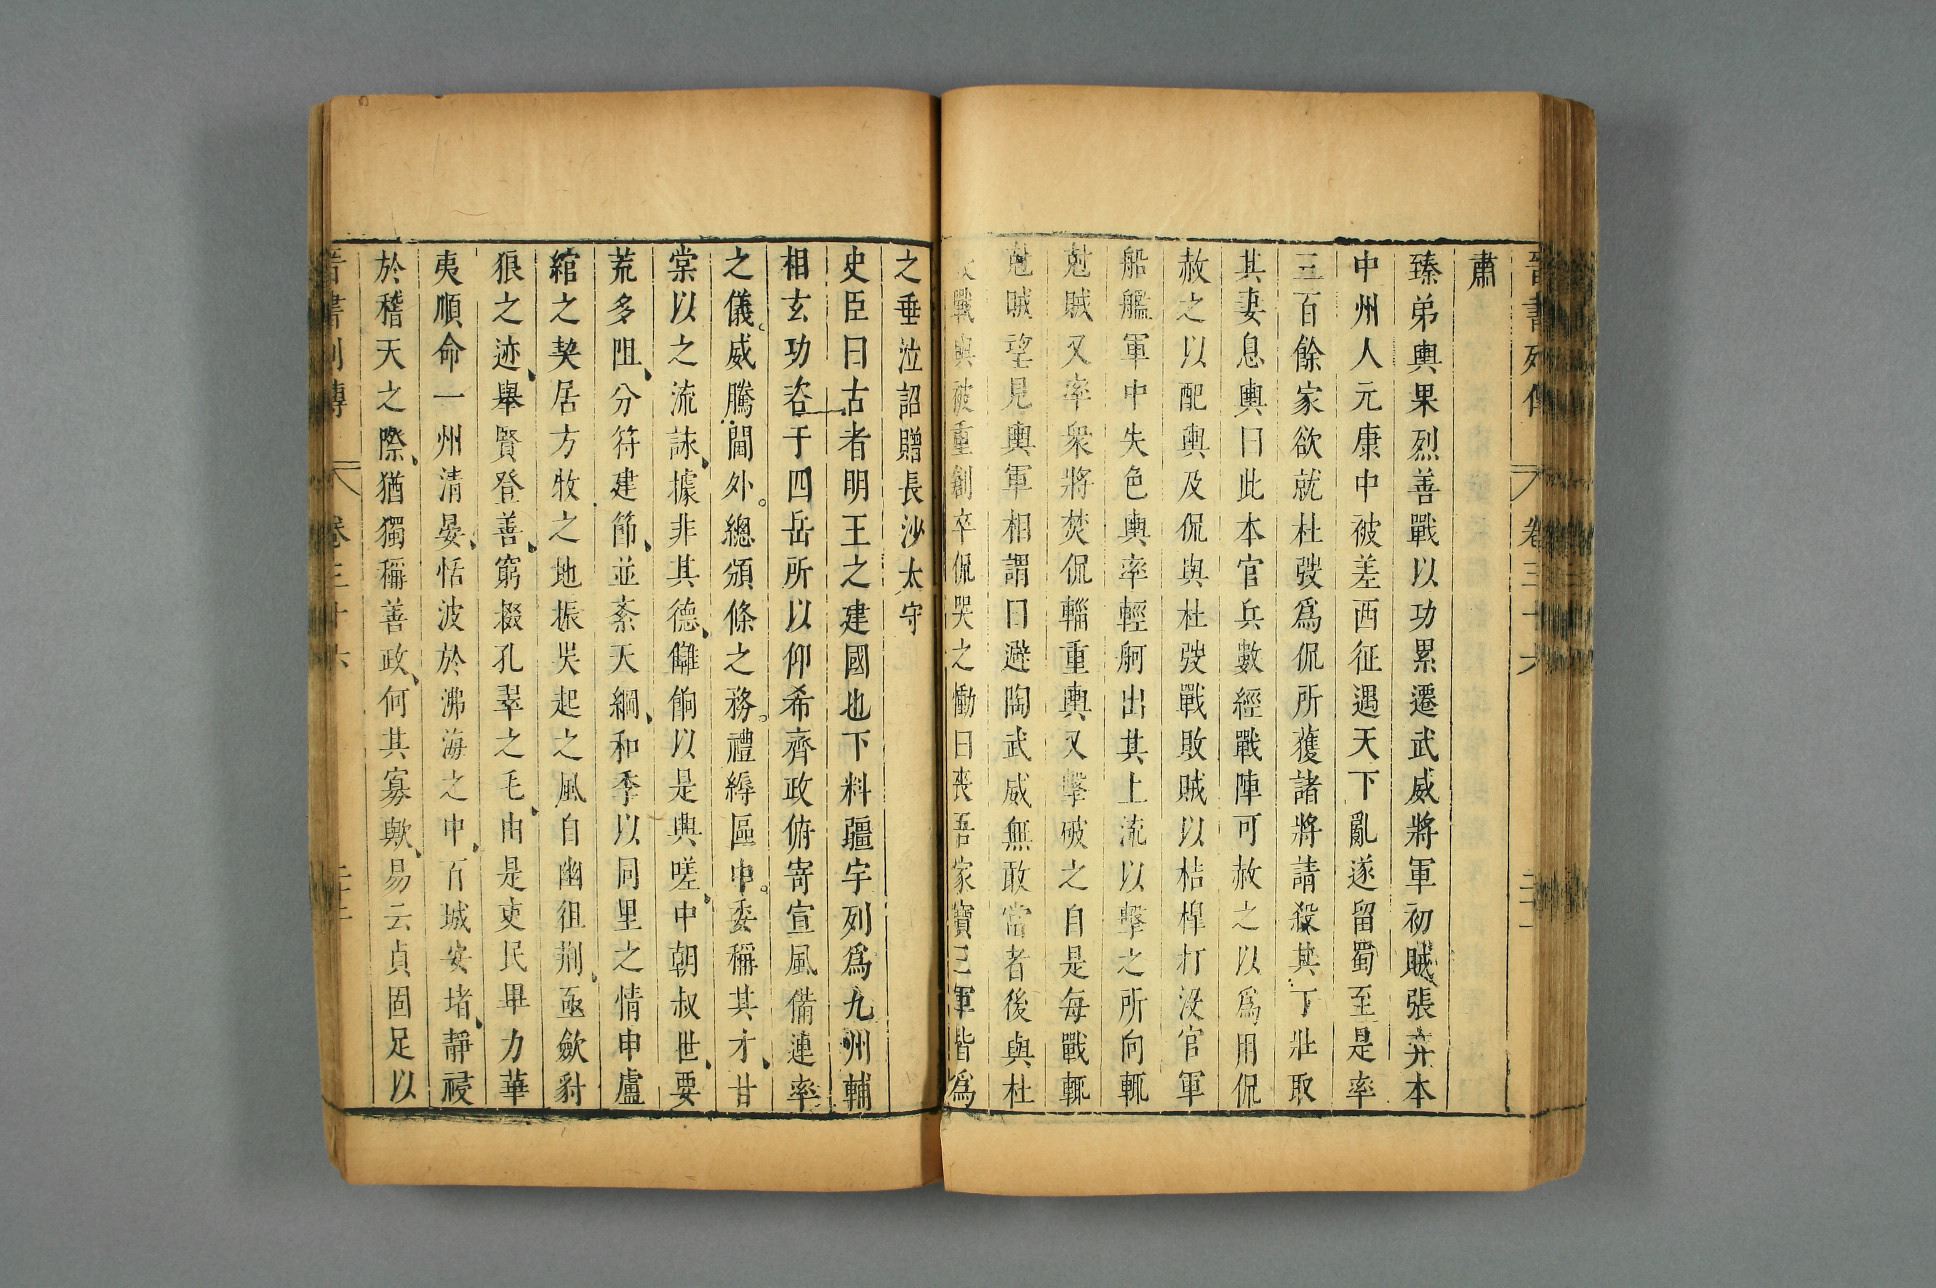 晉書列傳 卷三十六 二十一
肅
臻弟輿果烈善戰以功累遷武威將軍初賊張弈本
中州人元康中被差西征遇天下亂遂留蜀至是率
三百餘家欲就杜弢爲侃所獲諸將請殺其丁壯取
其妻息輿曰此本官兵數經戰陣可赦之以爲用侃
赦之以配輿及侃與杜弢戰敗賊以桔槹打沒官軍
船艦軍中失色輿率輕舸出其上流以擊之所向輒
尅賊又率衆將焚侃輜重輿又擊破之自是每戰輒
尅賊望見輿軍相謂曰避陶武威無敢當者後與杜
戰輿被重創卒侃哭之慟曰喪吾家寶三軍皆爲
之垂泣詔贈長沙太守
史臣曰古者明王之建國也下料疆宇列爲九州輔
相玄功咨于四岳所以仰希齊政俯寄宣風備連率
之儀威騰閫外總頒條之務禮縟區中委稱其才甘
棠以之流詠據非其德讎餉以是興嗟中朝叔世要
荒多阻分符建節並紊天綱和季以同里之情申盧
綰之契居方牧之地振吳起之風自幽徂荊亟斂豺
狼之迹舉賢登善窮掇孔翠之毛由是吏民畢力華
夷順命一州清晏恬波於沸海之中百城安堵靜祲
於稽天之際猶獨稱善政何其寡歟易云貞固足以
晉書列傳 卷三十六 二十二